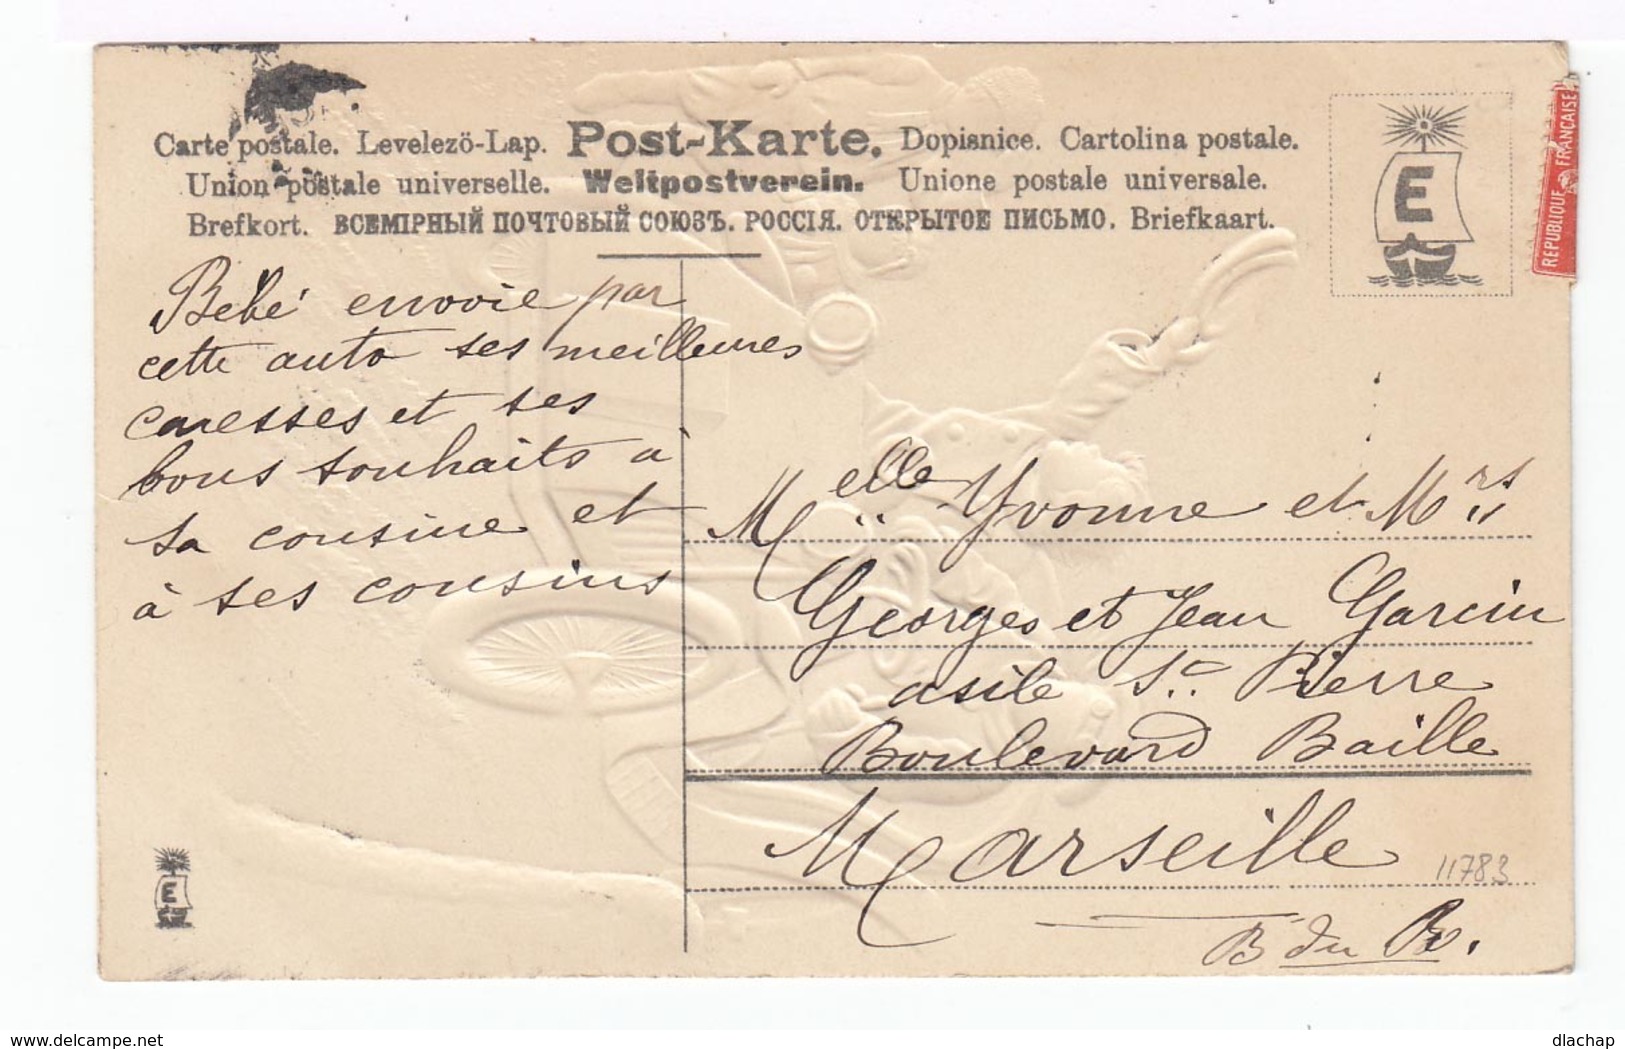 Carte postale. Levelezö-Lap. Post-Karte. Dopisnice. Cartolina postale.
Union postale universelle. Weltpostverein. Unione postale universale.
Brefkort. ВСЕМІРНЫЙ ПОЧТОВЫЙ СОЮЗЪ. РОССІЯ. ОТКРЫТОЕ ПИСЬМО. Briefkaart.
E
REPUBLIQUE FRANÇAISE
Bébé envoie par
cette auto ses meilleures
caresses et ses
bons souhaits à
sa cousine et
à ses cousins
Melle Yvonne et Mrs
Georges et Jean Garcin
asile St Pierre
Boulevard Baille
Marseille
11783
B du R.
E
www.delcampe.net
dlachap